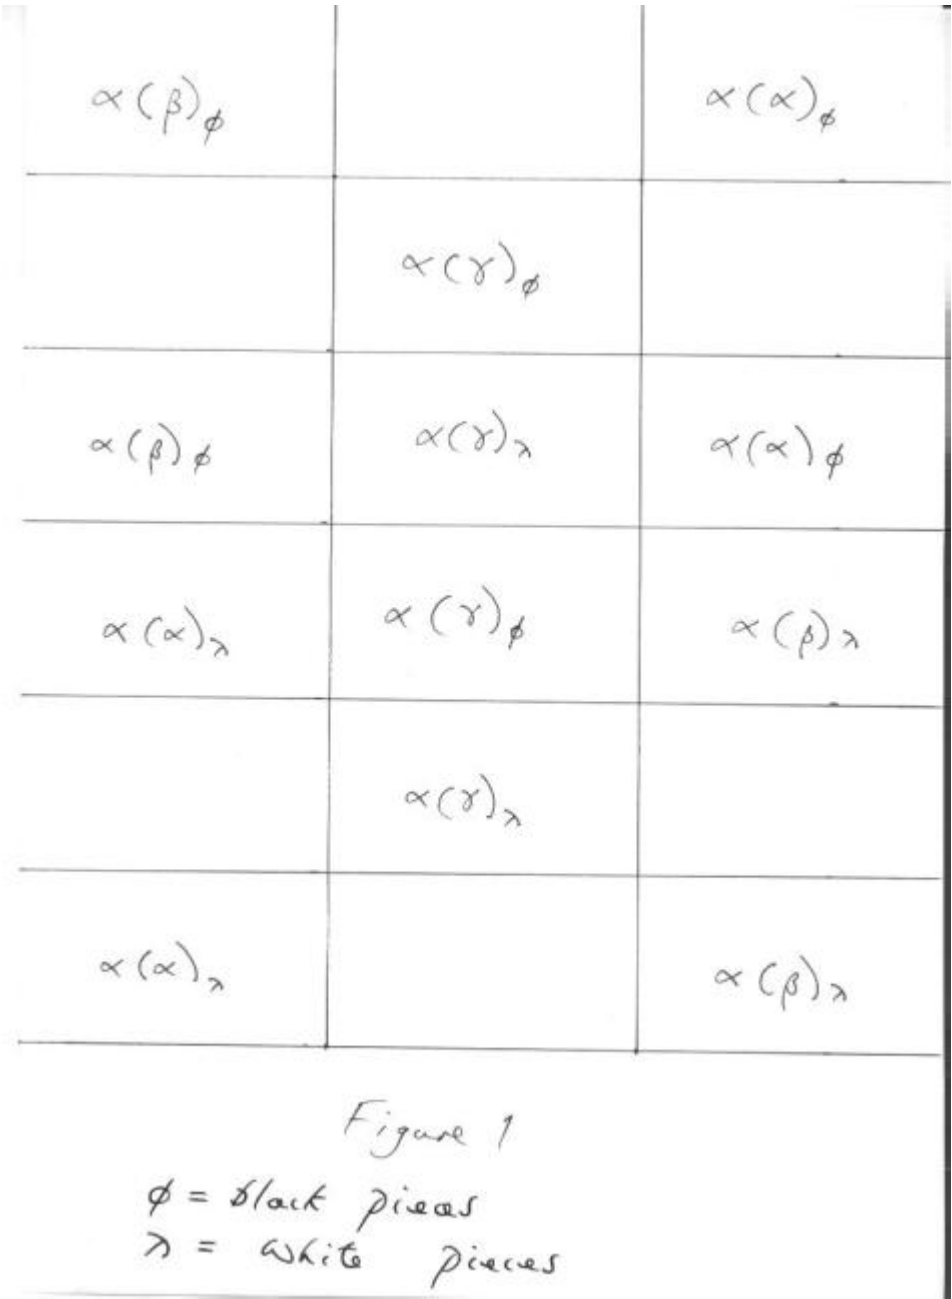 α(β)ϕ α(α)ϕ
α(γ)ϕ
α(β)ϕ α(γ)λ α(α)ϕ
α(α)λ α(γ)ϕ α(β)λ
α(γ)λ
α(α)λ α(β)λ
Figure 1
ϕ = black pieces
λ = white pieces